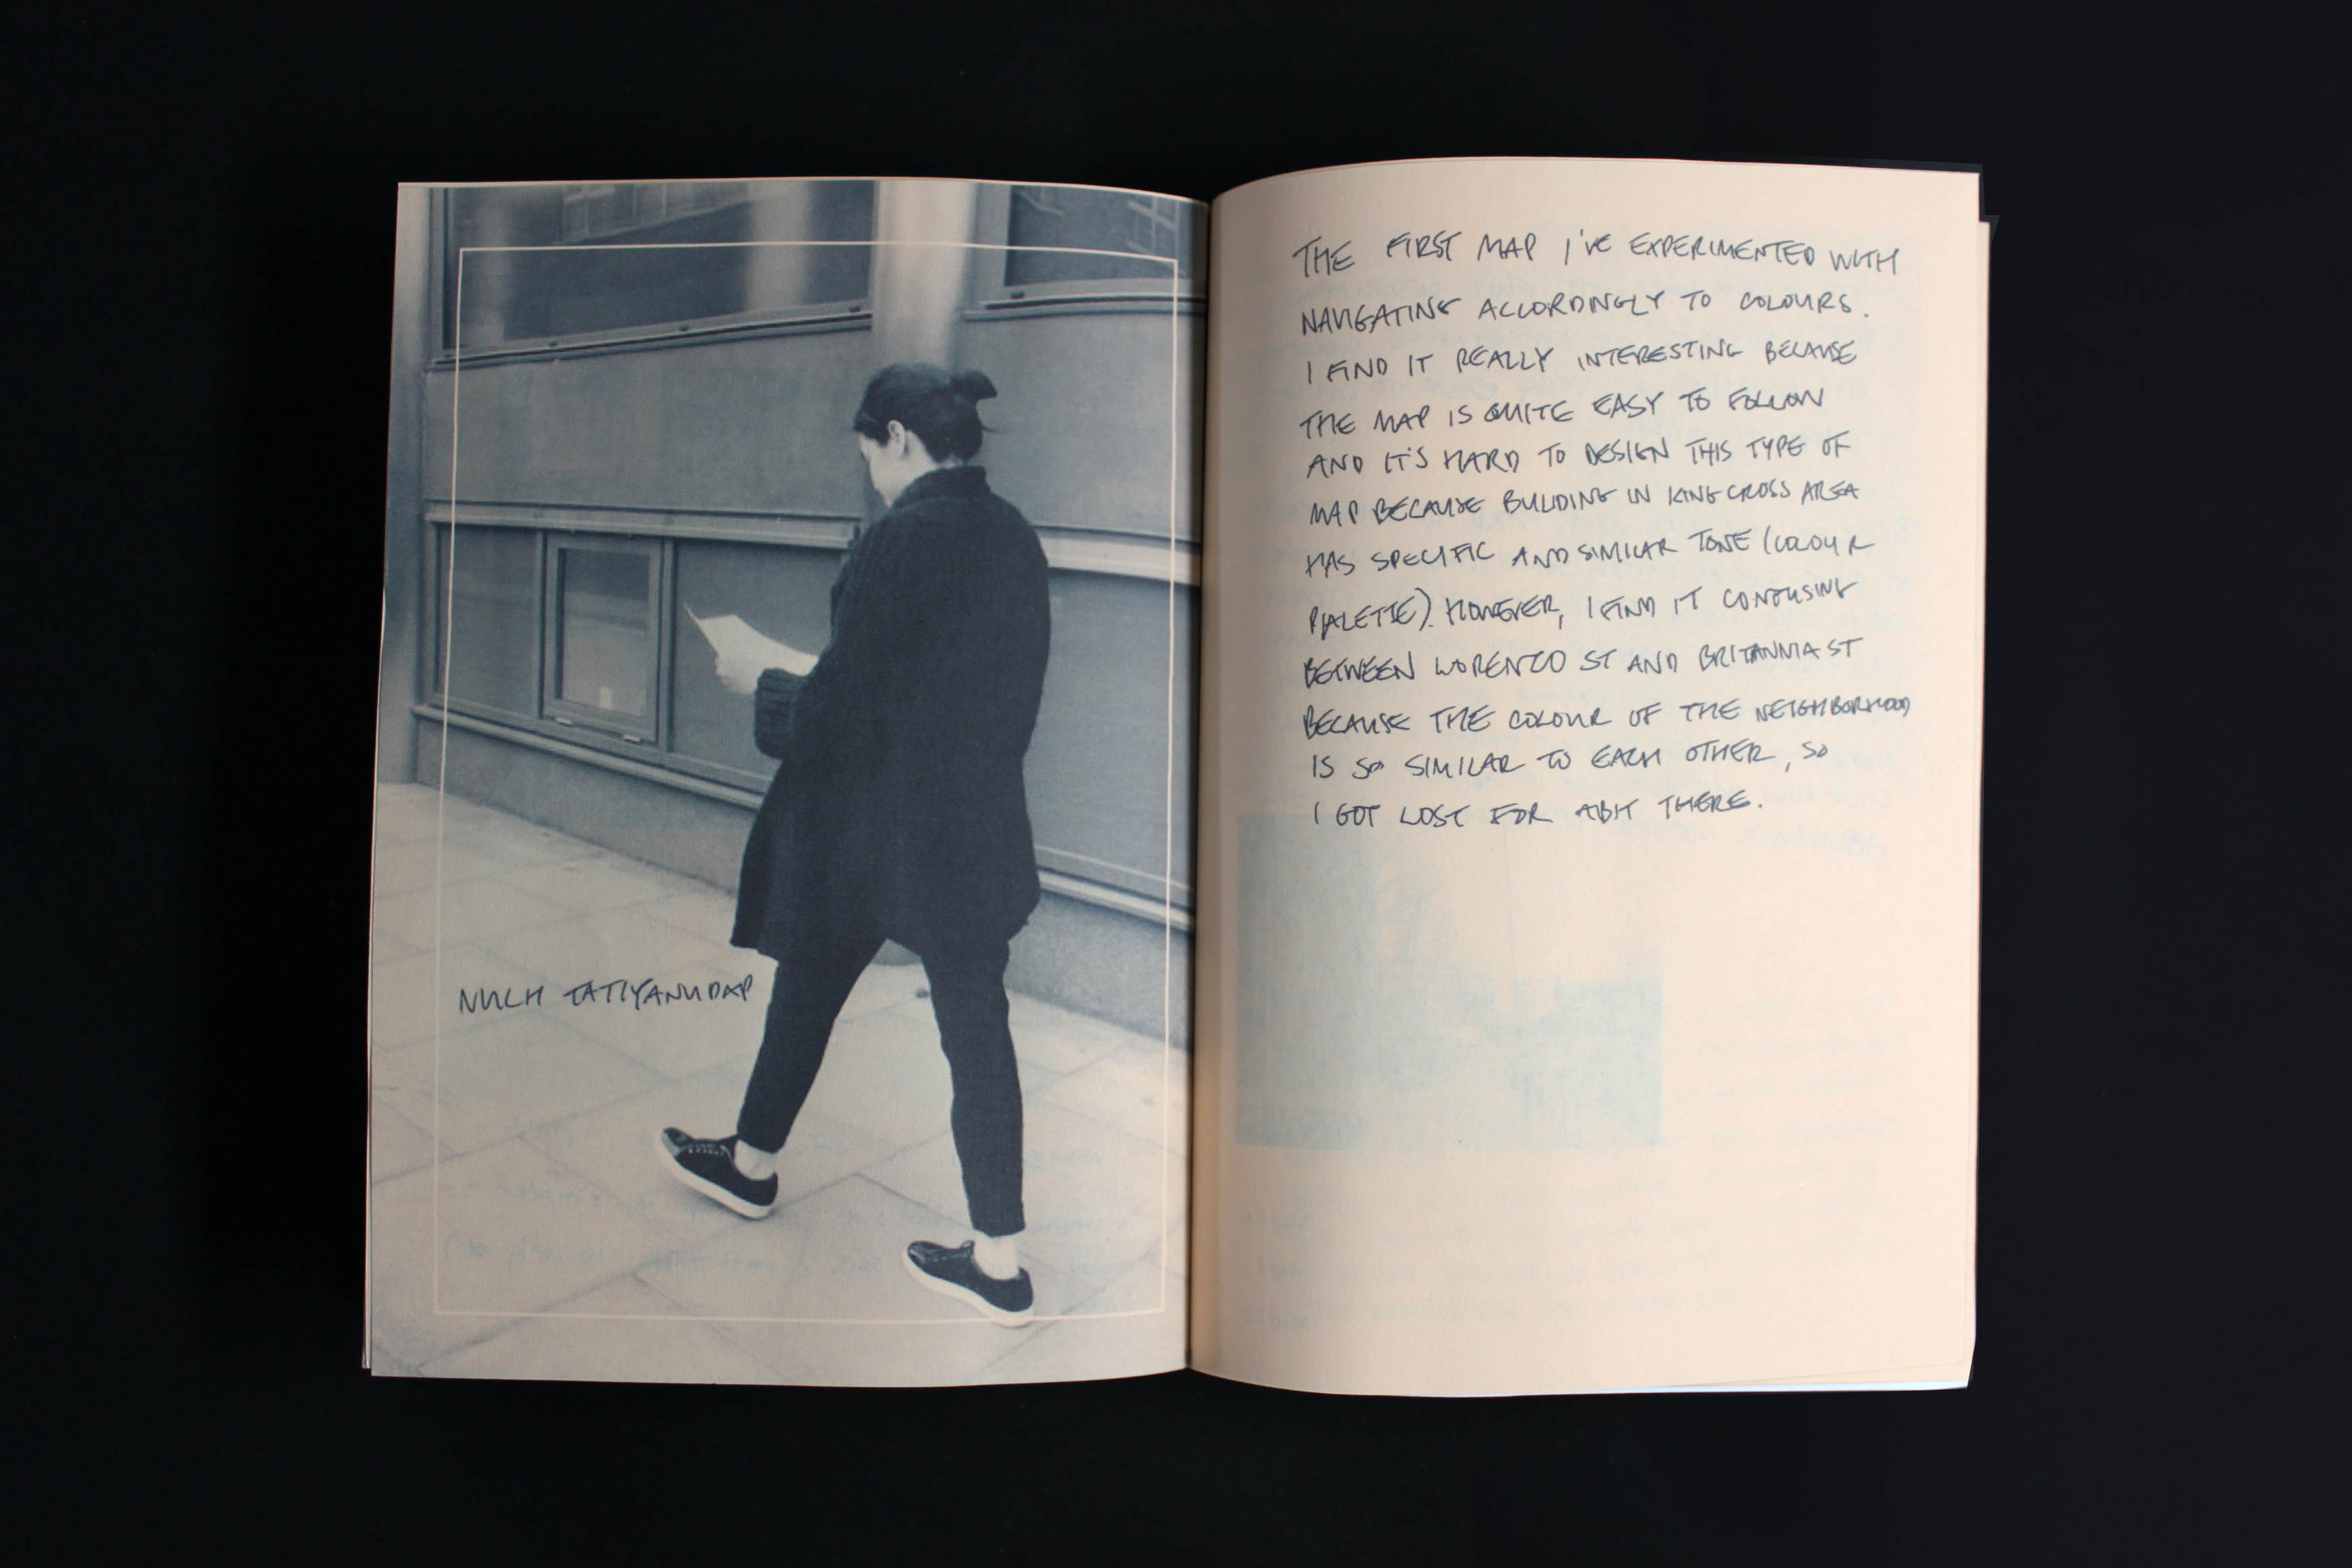 NUCH TATIYANUDAP
THE FIRST MAP I'VE EXPERIMENTED WITH
NAVIGATING ACCORDINGLY TO COLOURS.
I FIND IT REALLY INTERESTING BECAUSE
THE MAP IS QUITE EASY TO FOLLOW
AND IT'S HARD TO DESIGN THIS TYPE OF
MAP BECAUSE BUILDING IN KING CROSS AREA
HAS SPECIFIC AND SIMILAR TONE (COLOUR
PALETTE). HOWEVER, I FIND IT CONFUSING
BETWEEN LORENZO ST AND BRITANNIA ST
BECAUSE THE COLOUR OF THE NEIGHBORHOOD
IS SO SIMILAR TO EACH OTHER, SO
I GOT LOST FOR A BIT THERE.